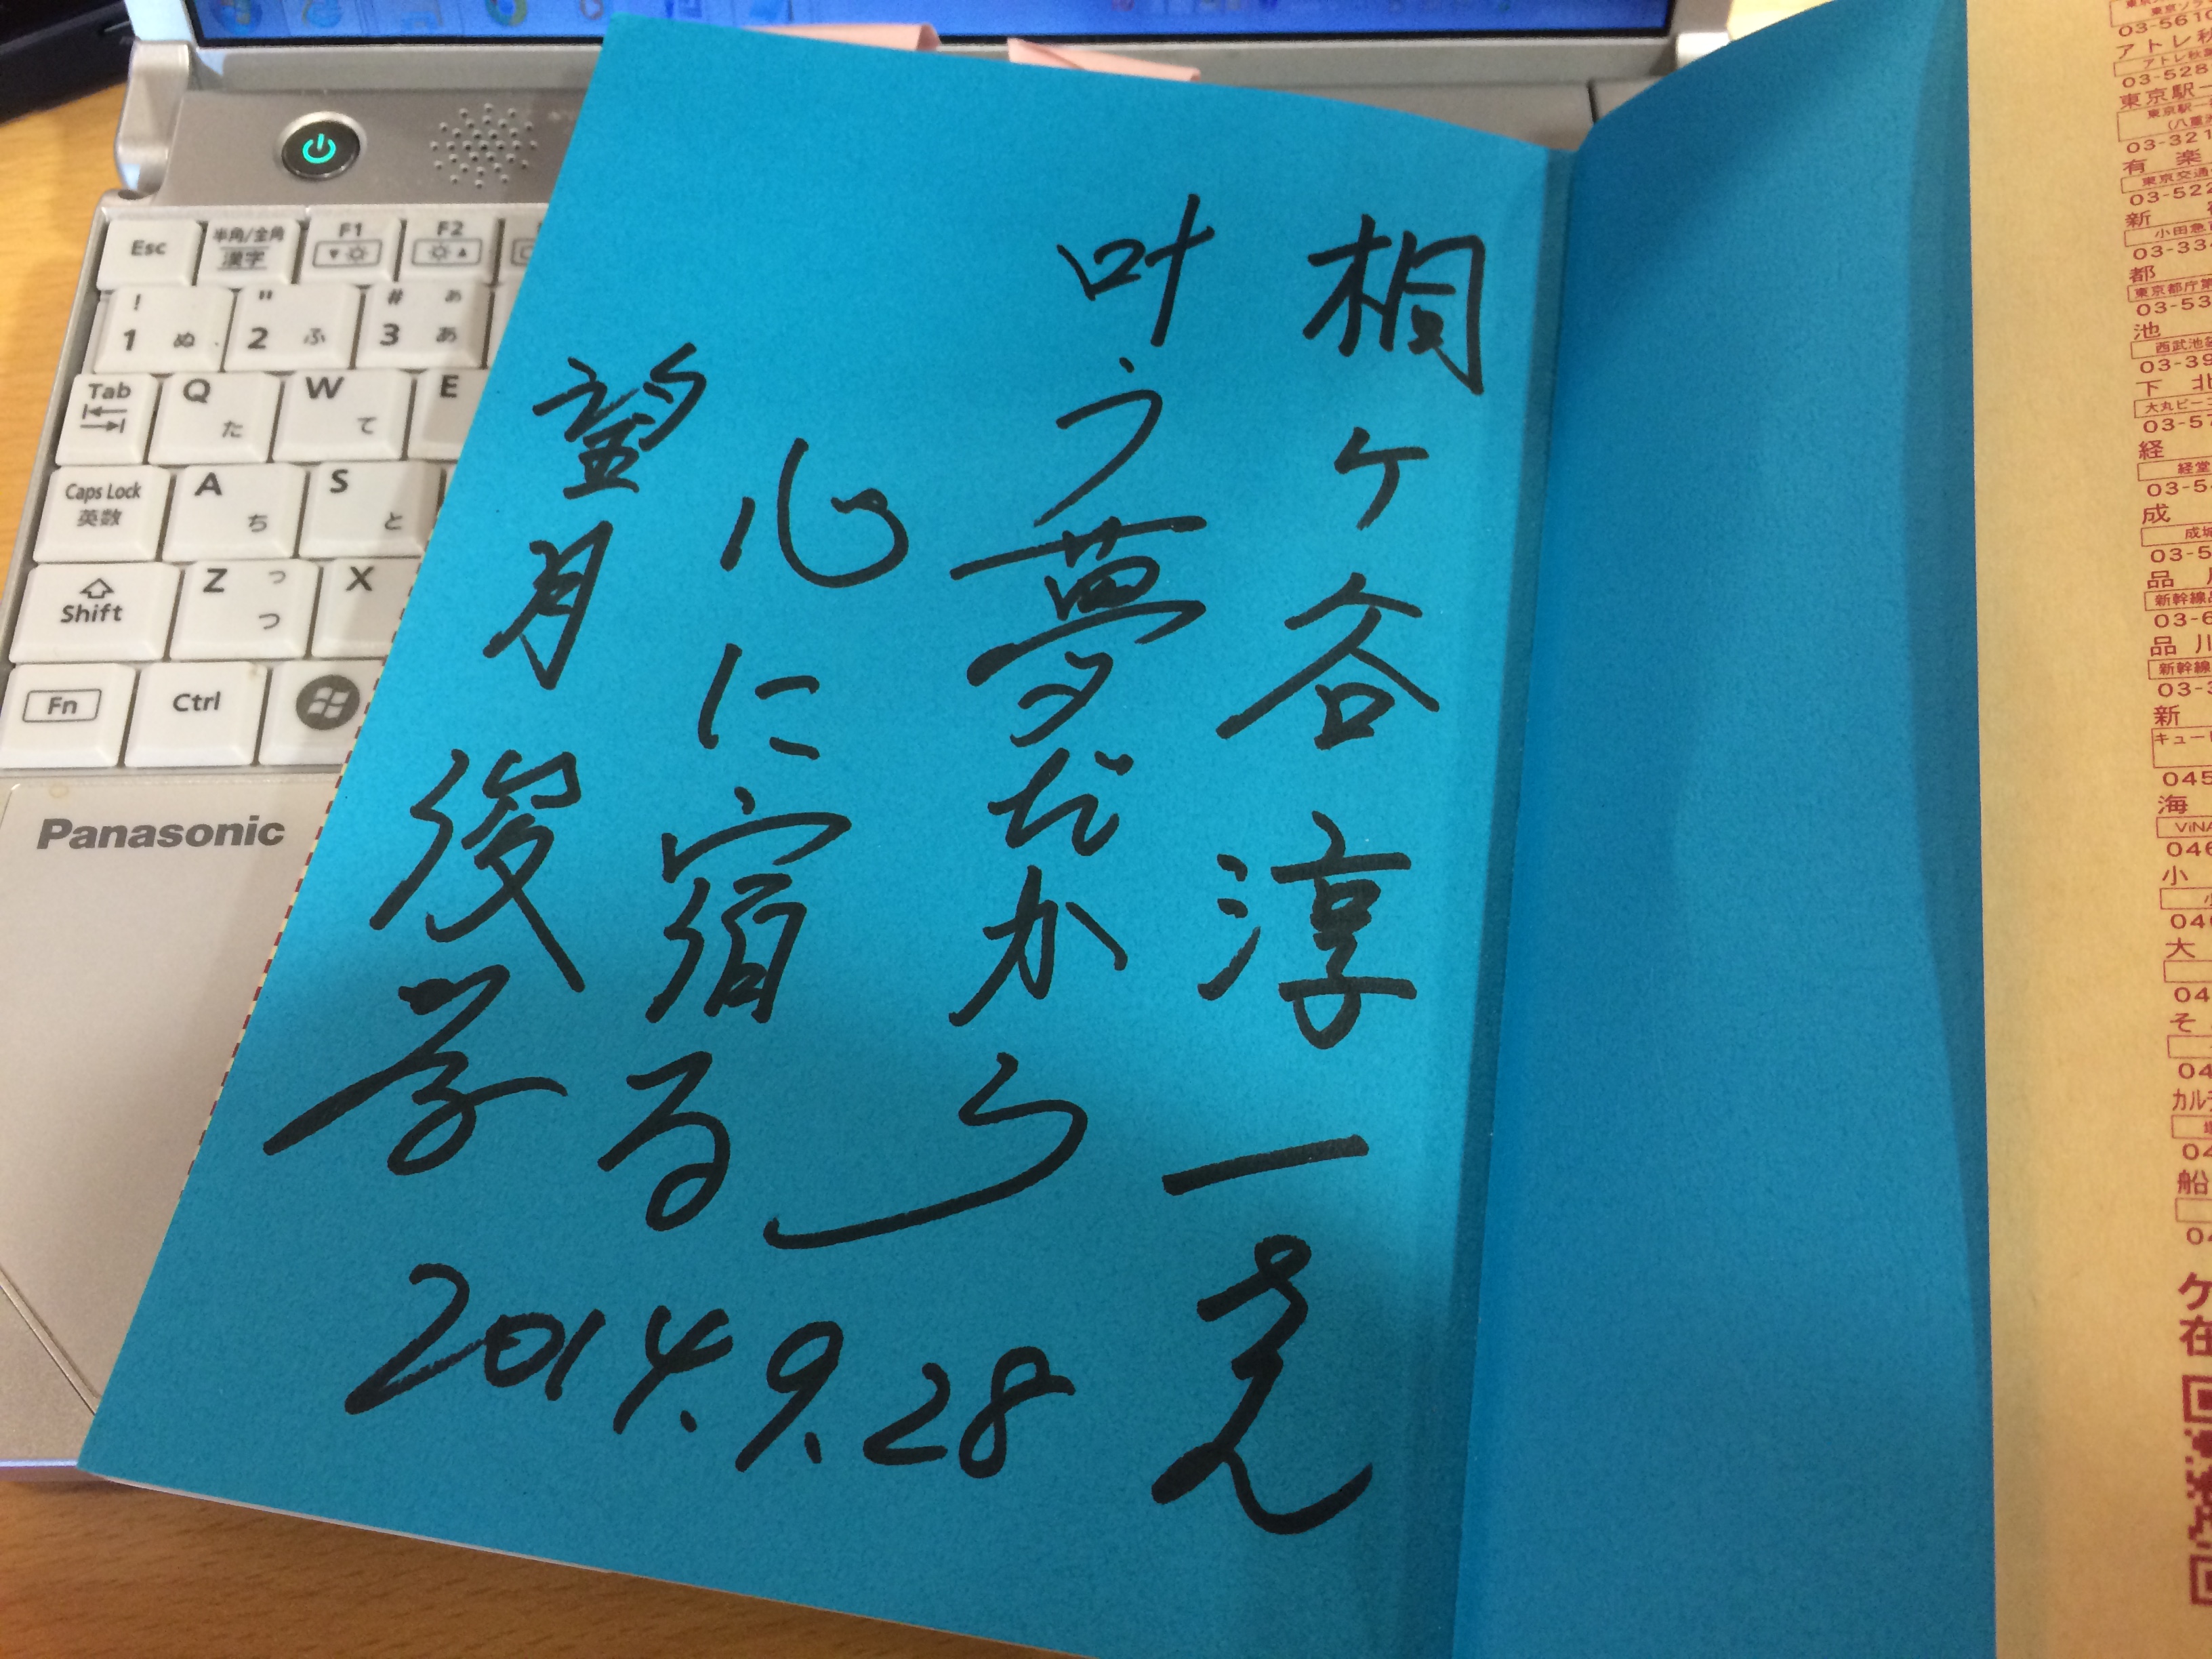 桐ケ谷淳一さん
叶う夢だから
心に宿る
望月俊孝
2014.9.28
Esc
半角/全角
漢字
F1
F2
! 1 ぬ
" 2 ふ
# 3 ぁ あ
Tab
Q た
W て
E
Caps Lock
英数
A ち
S と
Shift
Z っ つ
X
Fn
Ctrl
Panasonic
03-5610
アトレ秋
アトレ秋葉
03-528
東京駅一
東京駅一
(八重洲
03-321
有 楽
東京交通
03-522
新 宿
小田急百
03-334
都
東京都庁第
03-53
池
西武池袋
03-39
下 北
大丸ピーコ
03-57
経
経堂
03-5
成
成城
03-5
品 川
新幹線品
03-6
品 川
新幹線
03-3
新
キュート
045
海
ViNA
046
小
046
大
04
そ
04
カルチ
04
船
04
ケ
在